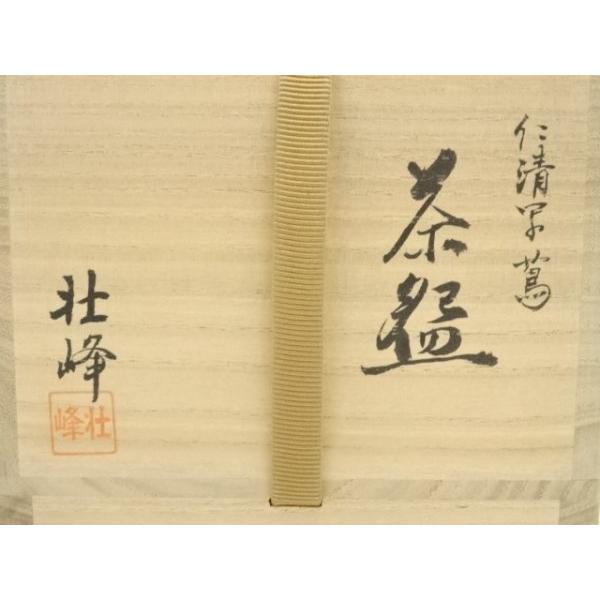 仁清写 蔦
茶盌
壮峰
壮峰